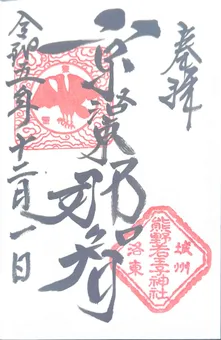 奉拝
京洛東
那智
令和五年十二月一日
城州
熊野若王子神社
洛東